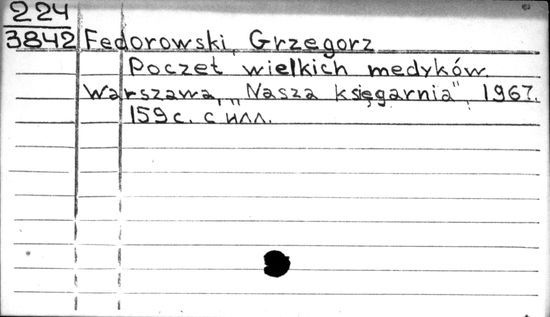 224
3842 Fedorowski, Grzegorz
Poczet wielkich medyków.
Warszawa, "Nasza księgarnia", 1967.
159 с. с илл.